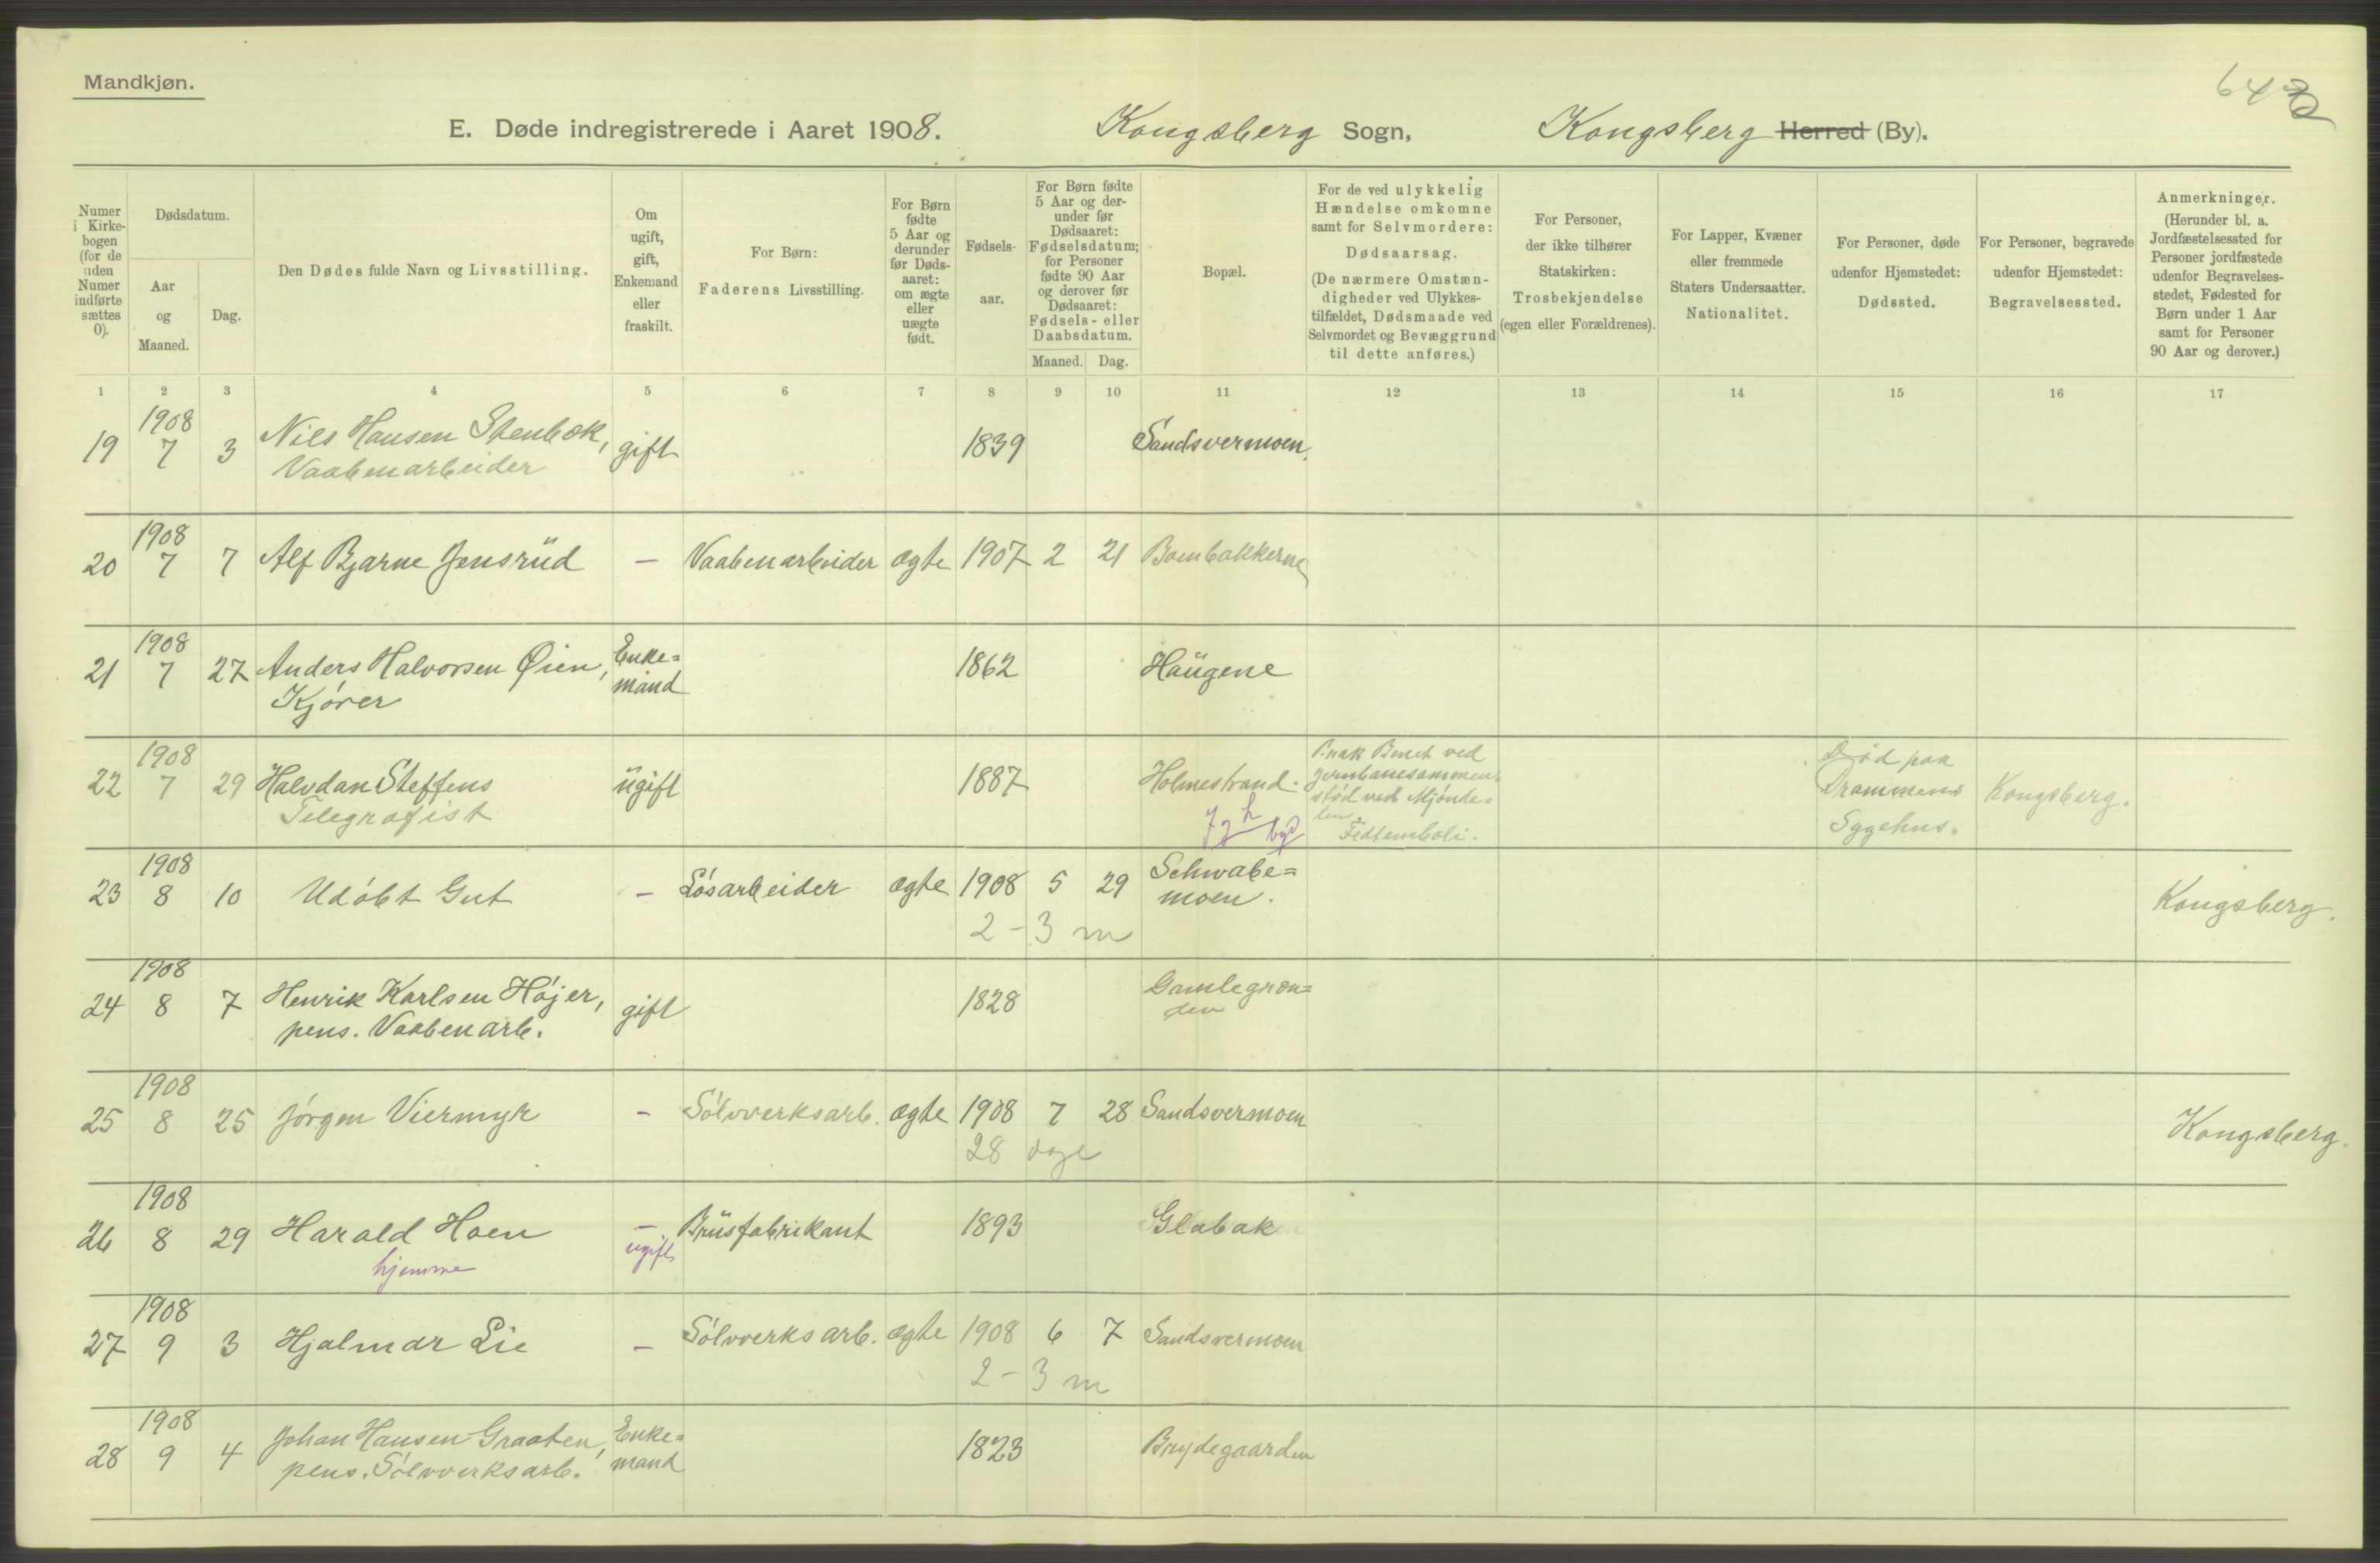 Mandkjøn.
64
E. Døde indregistrerede i Aaret 1908. Kongsberg Sogn, Kongsberg Herred (By).
Numer i Kirkebogen (for de uden Numer indførte sættes 0).
Dødsdatum.
Aar og Maaned.
Dag.
Den Dødes fulde Navn og Livsstilling.
Om ugift, gift, Enkemand eller fraskilt.
For Børn: Faderens Livsstilling.
For Børn fødte 5 Aar og derunder før Dødsaaret: om ægte eller uægte født.
Fødselsaar.
For Børn fødte 5 Aar og derunder før Dødsaaret: Fødselsdatum; for Personer fødte 90 Aar og derover før Dødsaaret: Fødsels- eller Daabsdatum.
Maaned. Dag.
Bopæl.
For de ved ulykkelig Hændelse omkomne samt for Selvmordere: Dødsaarsag. (De nærmere Omstændigheder ved Ulykkestilfældet, Dødsmaade ved Selvmordet og Bevæggrund til dette anføres.)
For Personer, der ikke tilhører Statskirken: Trosbekjendelse (egen eller Forældrenes).
For Lapper, Kvæner eller fremmede Staters Undersaatter. Nationalitet.
For Personer, døde udenfor Hjemstedet: Dødssted.
For Personer, begravede udenfor Hjemstedet: Begravelsessted.
Anmerkninger. (Herunder bl. a. Jordfæstelsessted for Personer jordfæstede udenfor Begravelsesstedet, Fødested for Børn under 1 Aar samt for Personer 90 Aar og derover.)
1 2 3 4 5 6 7 8 9 10 11 12 13 14 15 16 17
19 1908 7 3 Nils Hansen Stenbæk, Vaabenarbeider gift 1839 Sandsvermoen.
20 1908 7 7 Alf Bjarne Jensrüd — Vaabenarbeider ægte 1907 2 21 Bombakkerne
21 1908 7 27 Anders Halvorsen Øien, Kjører Enke=mand 1862 Haügene
22 1908 7 29 Halvdan Steffens Telegrafist ügift 1887 Holmestrand. Brak Benet ved Jernbanesammenstød ved Mjøndalen. Fedtemboli. Død paa Drammens Sygehus. Kongsberg.
23 1908 8 10 Udøbt Gut — Løsarbeider ægte 1908 5 29 Schwabe=moen. Kongsberg.
2-3 m
24 1908 8 7 Henrik Karlsen Højer, pens. Vaabenarb. gift 1828 Gamlegrænden
25 1908 8 25 Jørgen Viermyr — Sølvverksarb. ægte 1908 7 28 Sandsvermoen Kongsberg.
28 dage
26 1908 8 29 Harald Hoen hjemme — ugift Brüsfabrikant 1893 Glabak
27 1908 9 3 Hjalmar Lie — Sølvverksarb. ægte 1908 6 7 Sandsvermoen
2-3 m
28 1908 9 4 Johan Hansen Graaten, pens. Sølvverksarb. Enke=mand 1823 Brydegaarden